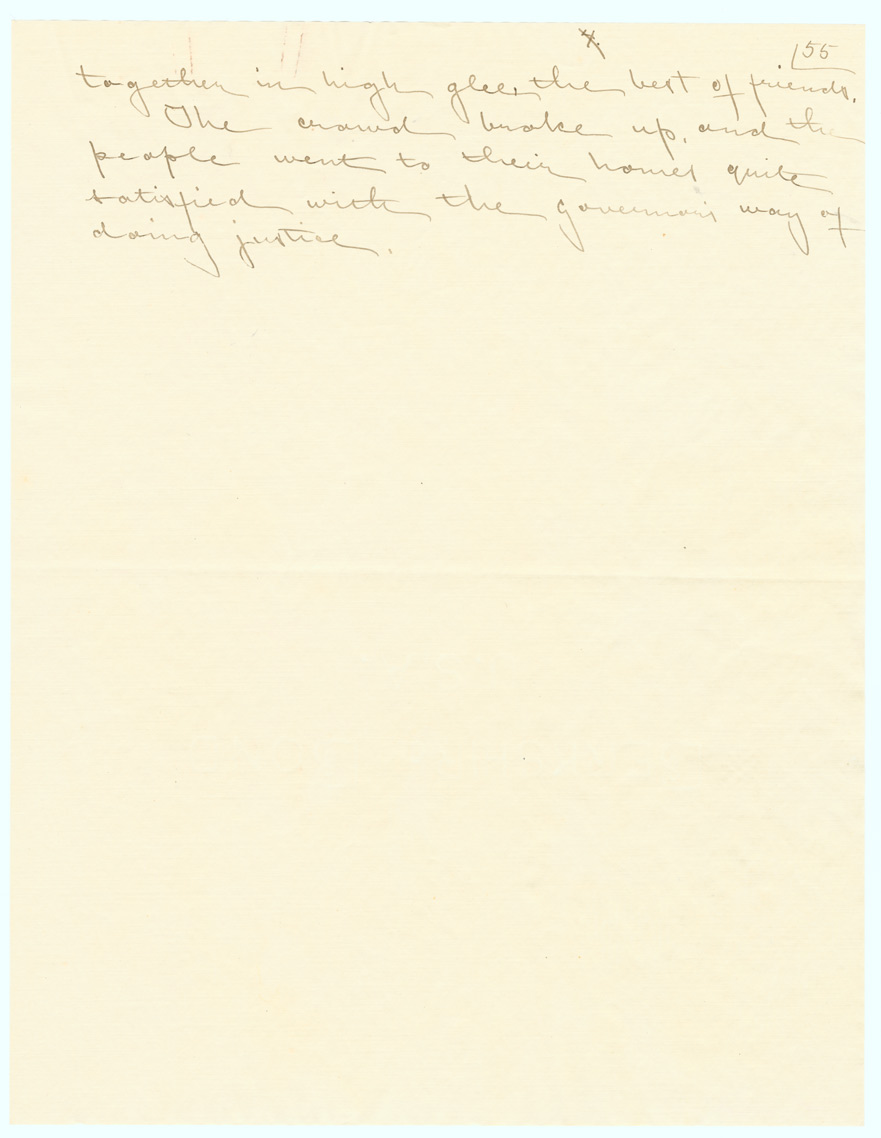 4.
55
together in high glee, the best of friends.
The crowd broke up, and the
people went to their homes quite
satisfied with the governor's way of
doing justice.